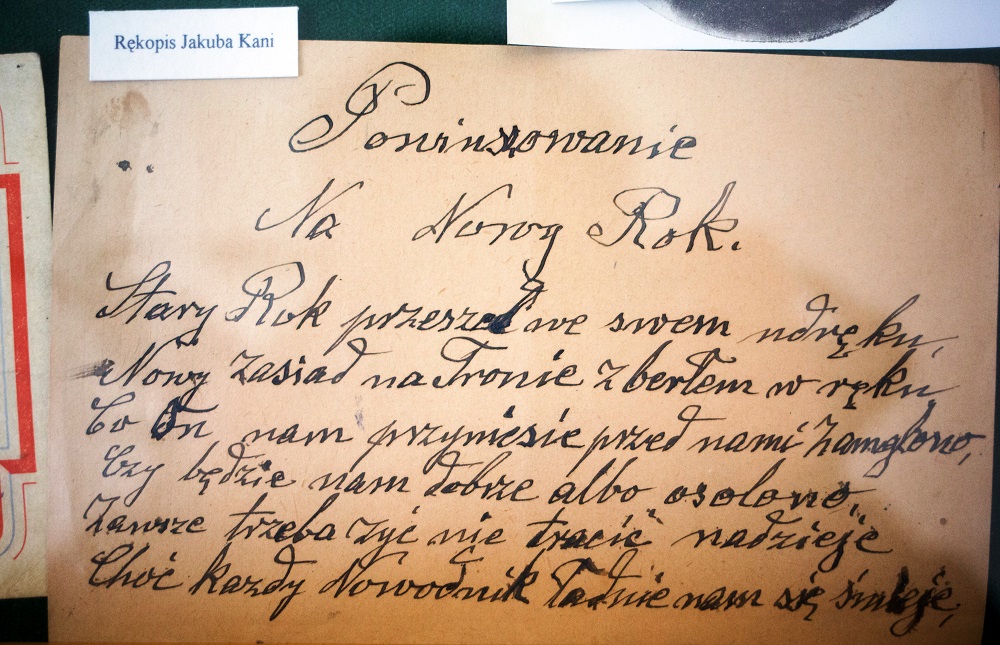 Rękopis Jakuba Kani
Powinszowanie
Na Nowy Rok.
Stary Rok przeszeł we swem udręku,
Nowy zasiad na Tronie z berłem w ręku
Co On nam przyniesie przed nami zamglono,
Czy będzie nam dobrze albo osolono.
Zawsze trzeba żyć nie tracić nadzieje
Choć kazdy Nowodnik ładnie nam się śmieje,